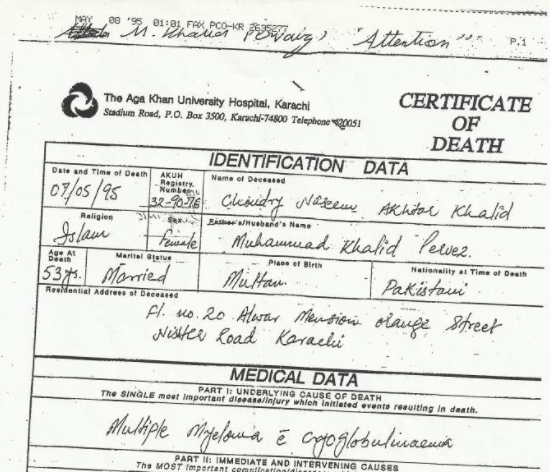 MAY 08 '95 01:01 FAX PCO-KR 2635277
M. Khalid Pervaiz, "Attention" P.1
The Aga Khan University Hospital, Karachi
Stadium Road, P.O. Box 3500, Karachi-74800 Telephone 420051
CERTIFICATE
OF
DEATH
IDENTIFICATION DATA
Date and Time of Death
07/05/95
AKUH
Registry
Number
32-90-76
Name of Deceased
Choudry Naseem Akhtar Khalid
Religion
Islam
Sex
Female
Father's/Husband's Name
Muhammad Khalid Pervez.
Age At
Death
53 yrs.
Marital Status
Married
Place of Birth
Multan
Nationality at Time of Death
Pakistani
Residential Address of Deceased
Fl. no. 20 Alwar Mension orange Street
Nishter Road Karachi
MEDICAL DATA
PART I: UNDERLYING CAUSE OF DEATH
The SINGLE most important disease/injury which initiated events resulting in death.
Multiple Myeloma c̄ cryoglobulinaemia
PART II: IMMEDIATE AND INTERVENING CAUSES
The MOST important